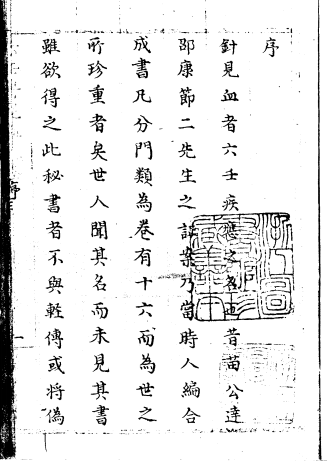 序
針見血者六壬疾應之名也昔苗公達
邵康節二先生之 案乃當時人編合
成書凡分門類為卷有十六而為世之
所珍重者矣世人聞其名而未見其書
雖欲得之此秘書者不與軽傳或将偽
序